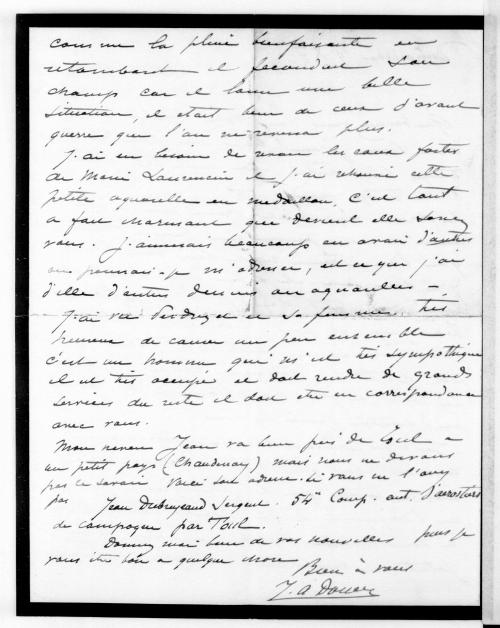 comme la pluie bienfaisante en
retombant il fecondait son
champ car il laisse une belle
situation, il etait bien de ceux d'avant
guerre que l'on ne reverra plus.
J'ai eu besoin de revoir les eaux fortes
de Marie Laurencin et j'ai retrouvé cette
petite aquarelle en medaillon. C'est tout
a fait charmant que devient elle savez
vous. J'aimerais beaucoup en avoir d'autres
ou pourrais-je m'adresser, est ce que j'ai
d'elle d'autres dessins ou aquarelles —
J'ai vu et sa femme très
heureux de causer un peu ensemble
c'est un homme qui m'est très sympathique
il est très occupé et doit rendre de grands
services du reste il doit etre en correspondance
avec vous.
Mon neveu Jean va bien près de Toul a
un petit pays (Chaudenay) mais nous ne devons
pas le savoir. Voici son adresse si vous ne l'avez
pas Jean Dubrujeaud Sergent. 54e Comp. aut. d'aerostiers
de campagne par Toul.
Donnez moi bien de vos nouvelles puis je
vous être bon a quelque chose
Bien à vous
J. A